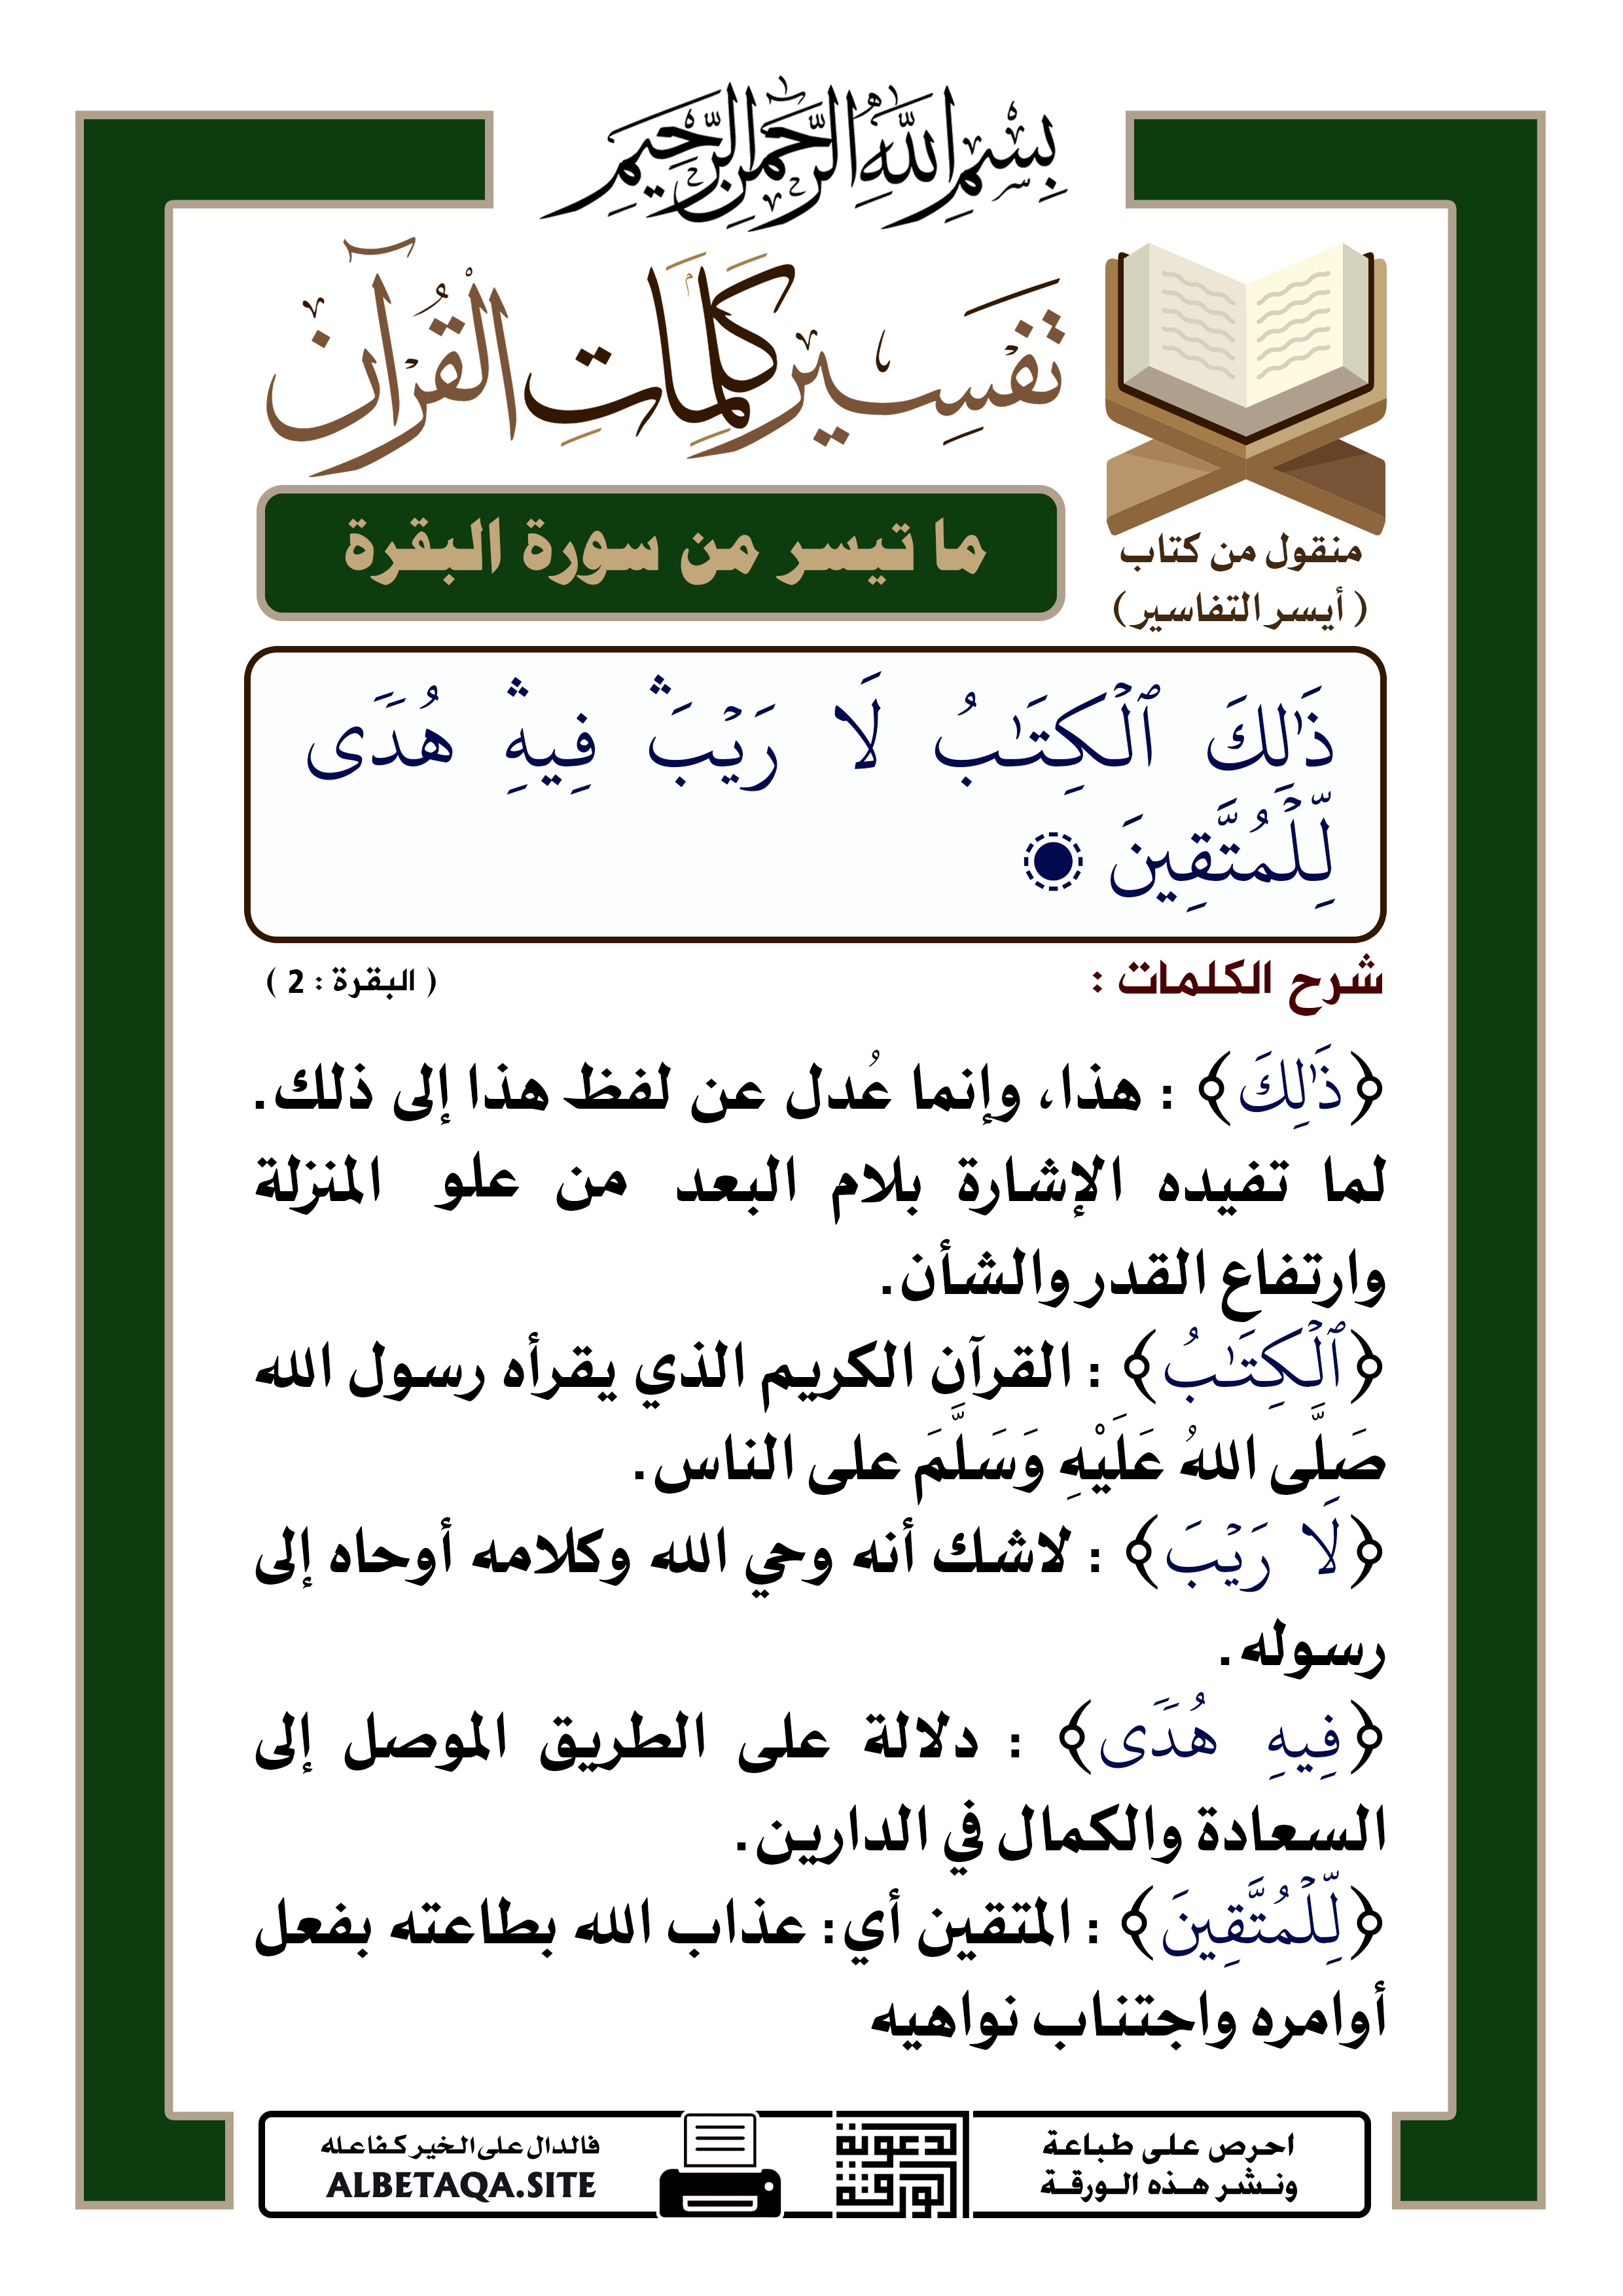 بِسْمِ اللَّهِ الرَّحْمَٰنِ الرَّحِيمِ
تَفْسِير كَلِمَاتِ الْقُرْآن
منقول من كتاب
( أيسر التفاسير )
ما تيسر من سورة البقرة
ذَٰلِكَ ٱلۡكِتَٰبُ لَا رَيۡبَۛ فِيهِۛ هُدٗى
لِّلۡمُتَّقِينَ
شرح الكلمات :
( البقرة : 2 )
﴿ذَٰلِكَ﴾ : هذا، وإنما عُدل عن لفظ هذا إلى ذلك.
لما تفيده الإشارة بلام البعد من علو المنزلة
وارتفاع القدر والشأن.
﴿ٱلۡكِتَٰبُ﴾ : القرآن الكريم الذي يقرأه رسول الله
صَلَّى اللهُ عَلَيْهِ وَسَلَّمَ على الناس.
﴿لَا رَيۡبَ﴾ : لاشك أنه وحي الله وكلامه أوحاه إلى
رسوله.
﴿فِيهِ هُدٗى﴾ : دلالة على الطريق الموصل إلى
السعادة والكمال في الدارين.
﴿لِّلۡمُتَّقِينَ﴾ : المتقين أي: عذاب الله بطاعته بفعل
أوامره واجتناب نواهيه
احرص على طباعة
ونشر هذه الورقة
الدعوية
الورقة
فالدال على الخير كفاعله
ALBETAQA.SITE